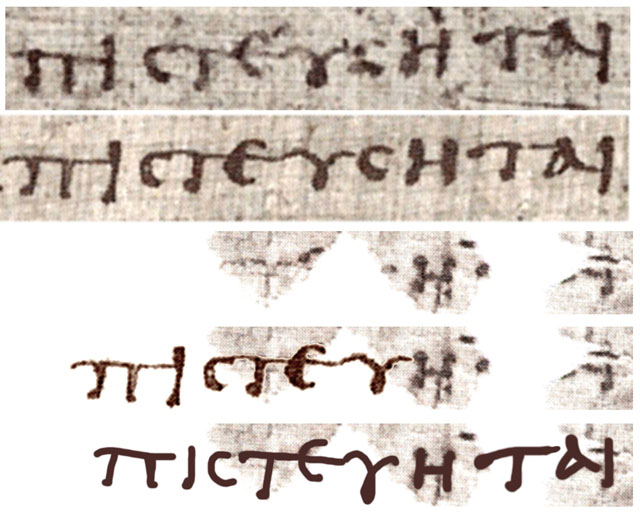 πιϲτευϲηται
πιϲτευϲηται
η
πιϲτευη
πιϲτευηται